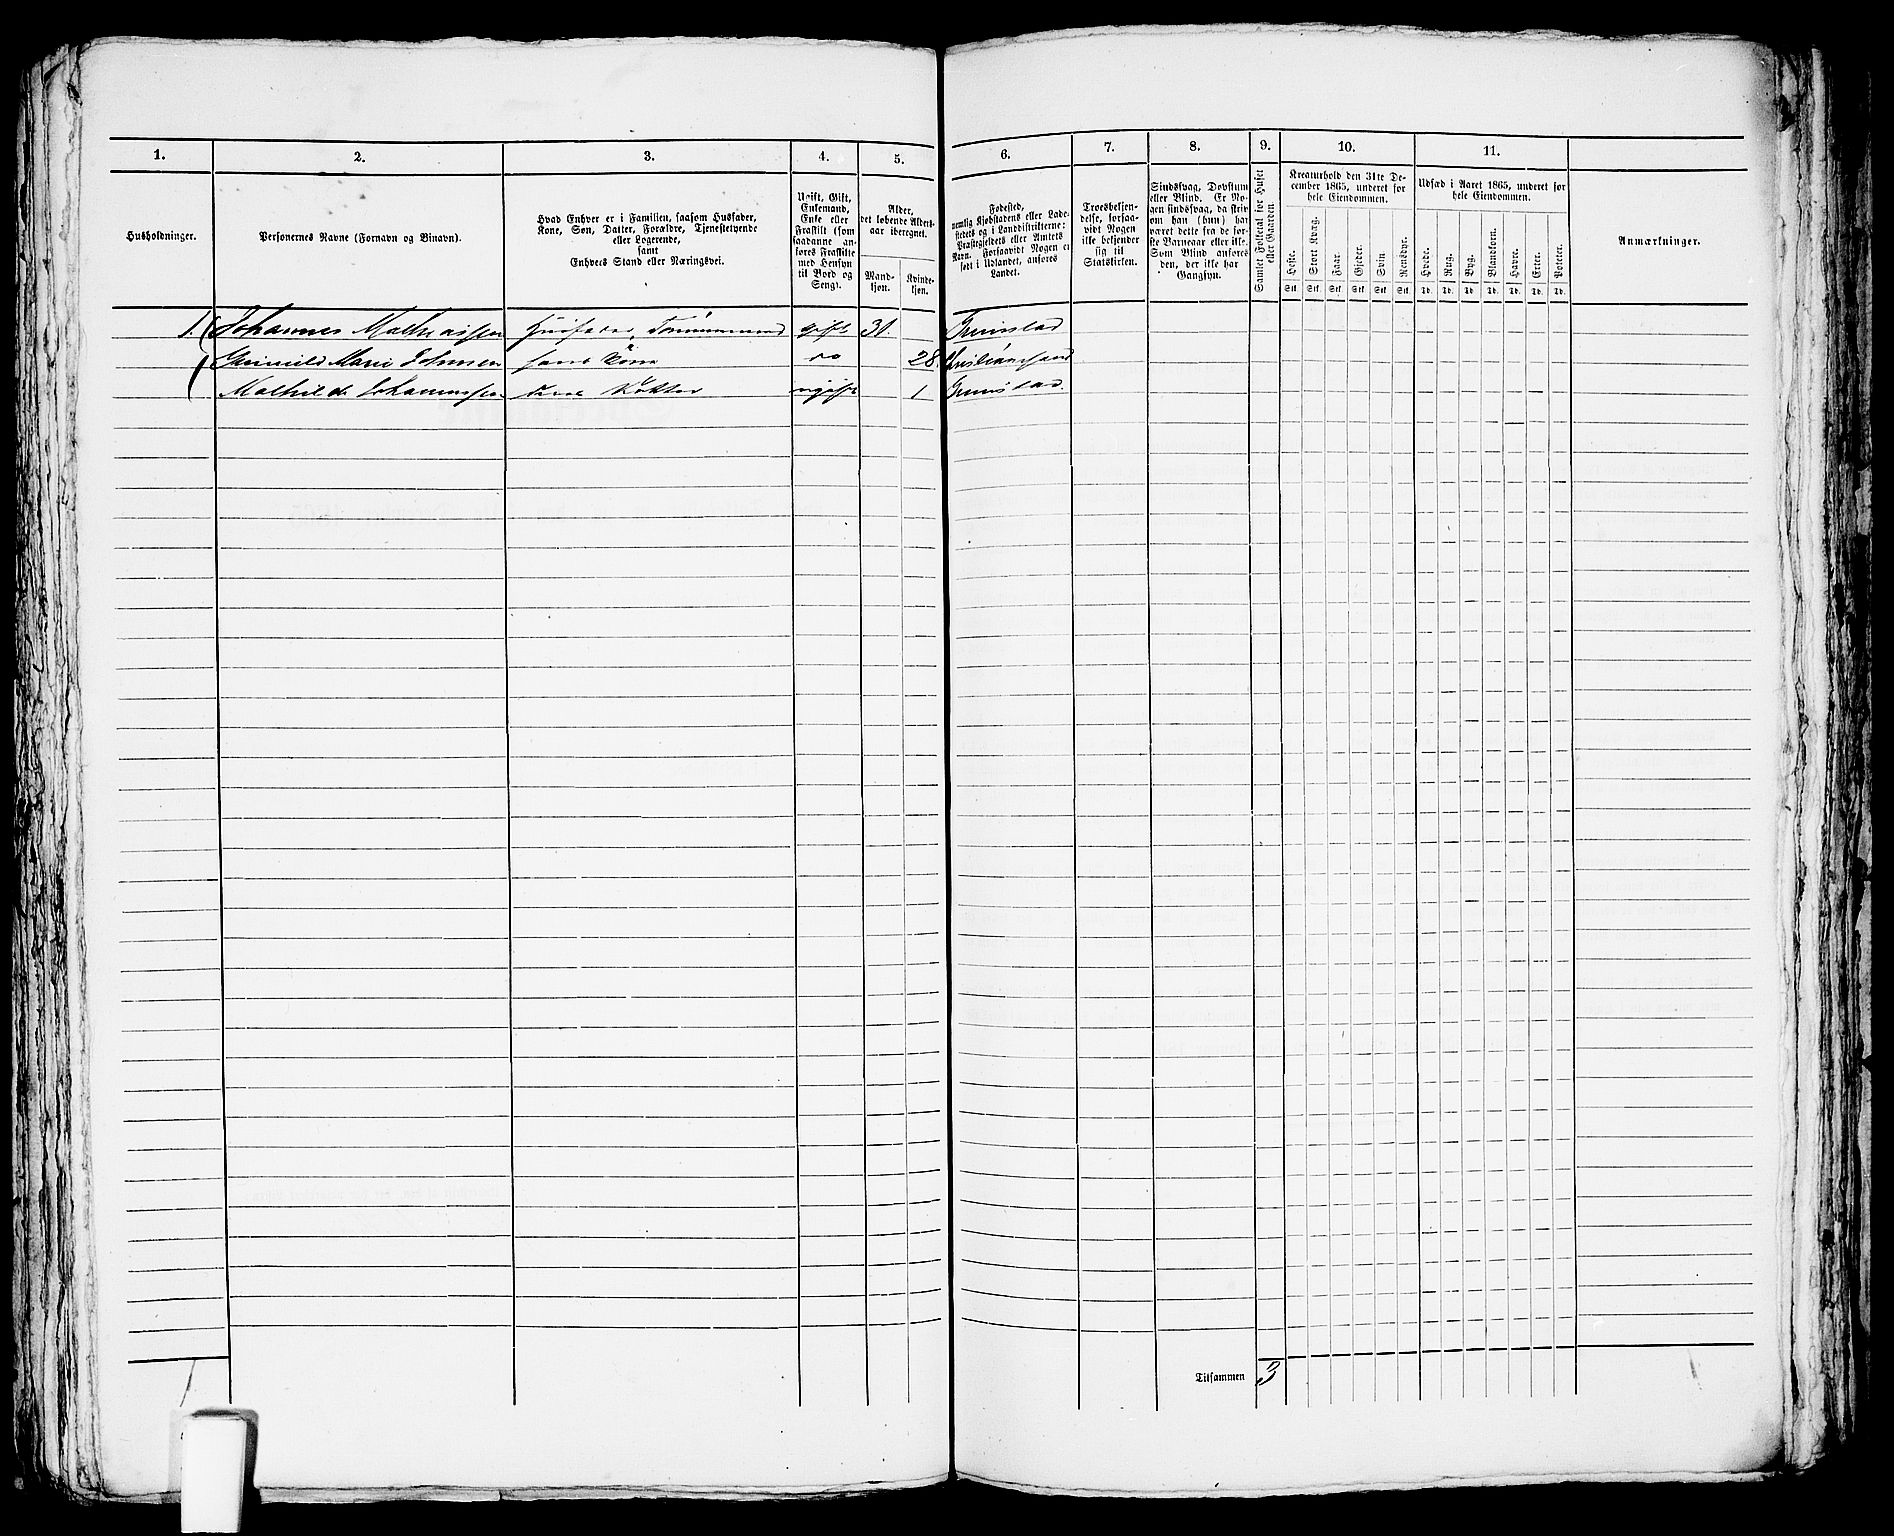 1. 2. 3. 4. 5. 6. 7. 8. 9. 10. 11.
Husholdninger.
Personernes Navne (Fornavn og Binavn).
Hvad Enhver er i Familien, saasom Husfader,
Kone, Søn, Datter, Forældre, Tjenestetyende
eller Logerende,
samt
Enhvers Stand eller Næringsvei.
Ugift, Gift,
Enkemand,
Enke eller
Fraskilt (som
saadanne an-
føres Fraskilte
med Hensyn
til Bord og
Seng).
Alder,
det løbende Alders-
aar iberegnet.
Mand-
kjøn.
Kvinde-
kjøn.
Fødested,
nemlig Kjøbstadens eller Lade-
stedets og i Landdistrikterne:
Præstegjeldets eller Amtets
Navn. Forsaavidt Nogen er
født i Udlandet, anføres
Landet.
Troesbekjen-
delse, forsaa-
vidt Nogen
ikke bekjender
sig til
Statskirken.
Sindssvag, Døvstum
eller Blind. Er No-
gen sindssvag, da skri-
ves om han (hun) har
været dette fra de før-
ste Barneaar eller ikke.
Som Blind anføres
den, der ikke har
Gangsyn.
Samlet Folketal for Huset
eller Gaarden.
Kreaturhold den 31te De-
cember 1865, underet for
hele Eiendommen.
Heste. Stort Kvæg. Faar. Gjeder. Svin. Rensdyr.
Stk. Stk. Stk. Stk. Stk. Stk.
Udsæd i Aaret 1865, underet for
hele Eiendommen.
Hvede. Rug. Byg. Blandkorn. Havre. Erter. Poteter.
Td. Td. Td. Td. Td. Td. Td.
Anmærkninger.
1. Johannes Mathiassen Husfader, Tømmermand gift 31. Grimstad
Gunnild Marie Johnsen hans Kone do 28 Christianssand
Mathilde Johannessen deres Datter ugift 1 Grimstad.
Tilsammen 3